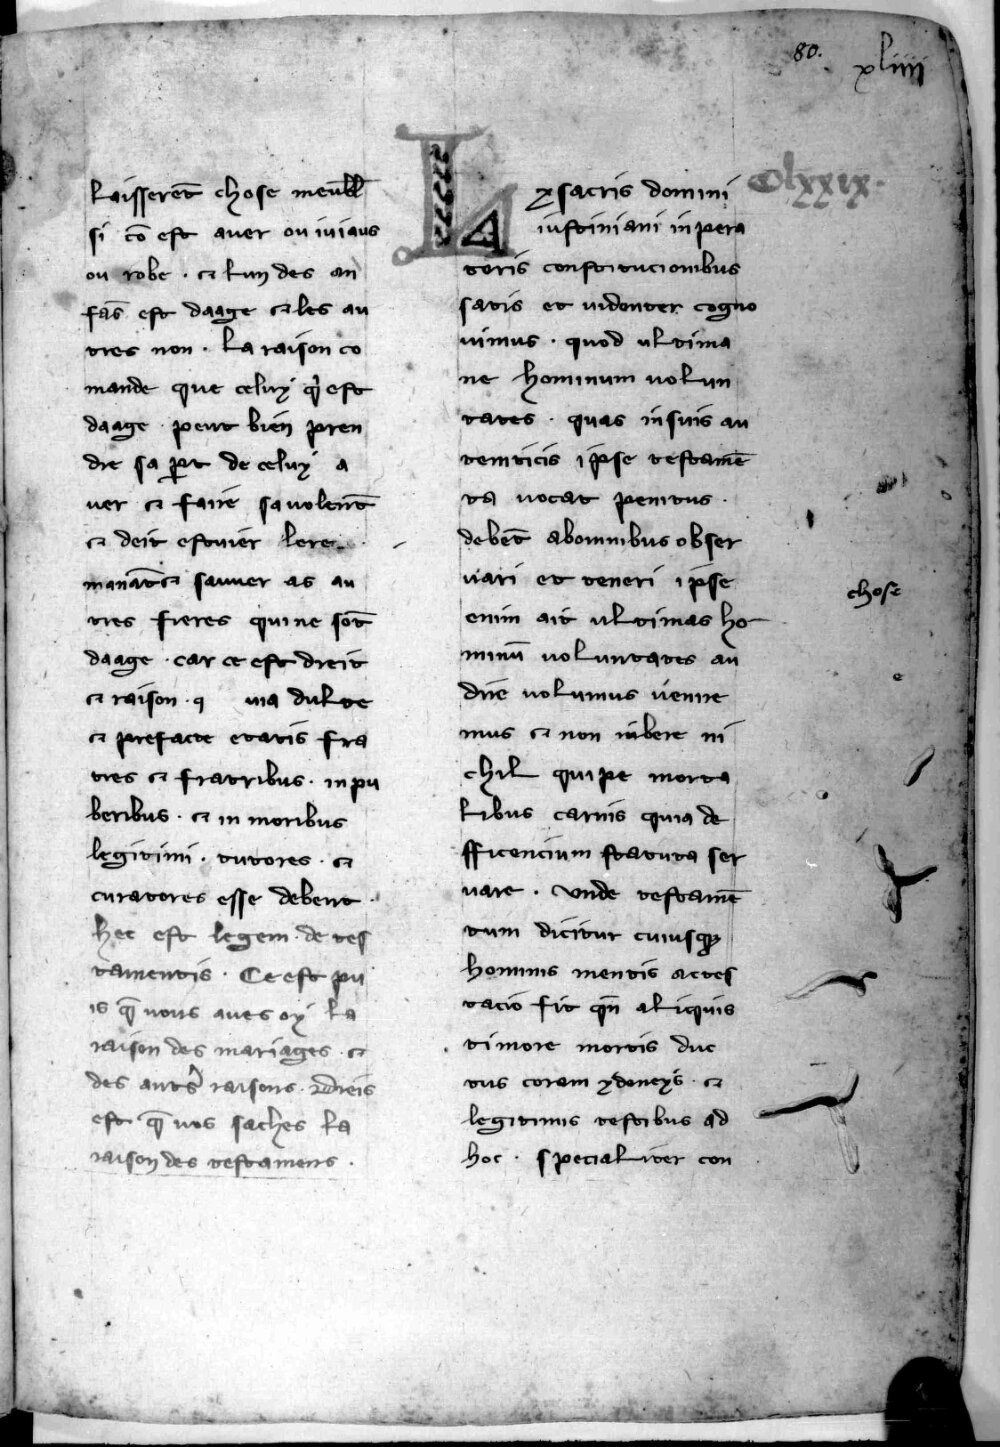 80.
xliiii
laisserēt chose meubḻḻ
si cō est aver ou iuiaus
ou robe · ⁊ lun des an
fās est daage ⁊ les au
tres non · la raison co
mande que celuy qͥ est
daage · peut bien pren
dre sa ꝑt de celuy a
uer ⁊ faire sa volent̄
⁊ deit estuier lere
manāt ⁊ sauuer as au
tres freres qui ne sōt
daage · car ce est dreit
⁊ raison ·
⁊ prefacte etatis fra
tres ⁊ fratribus · inpu
beribus · ⁊ in moribus
legitimi · tutores · ⁊
curatores esse debent ·
hec est legem · de tes
tamentis · Ce est pu
is q̄ vous aues oy la
raison des mariages · ⁊
des autrˢ raisons · Dreis
est q̄ vos saches la
raison des testamens ·
Clxxix·
L
Ex sacris domini
iustiniani inpera
toris constitucionibus
satis et uidenter cogno
uimus · quod ultima
ne hominum uolun
tates · quas in suis au
tenticis ipse testamē
ta vocat penitus ·
debēt ab omnibus obser
uari et teneri ipse
enim ait ultimas ho
minū voluntates au
dire volumus venire
mus ⁊ non iubere ni
chil quipe morta
libus carius quia de
fficencium statuta ser
uare · Vnde testamē
tum dicitur cuiusqꝫ
hominis mentis actes
tacio fit qn̄ aliquis
timore mortis duc
tus coram ydoneys · ⁊
legitimis testibus ad
hoc · specialiter con
chose